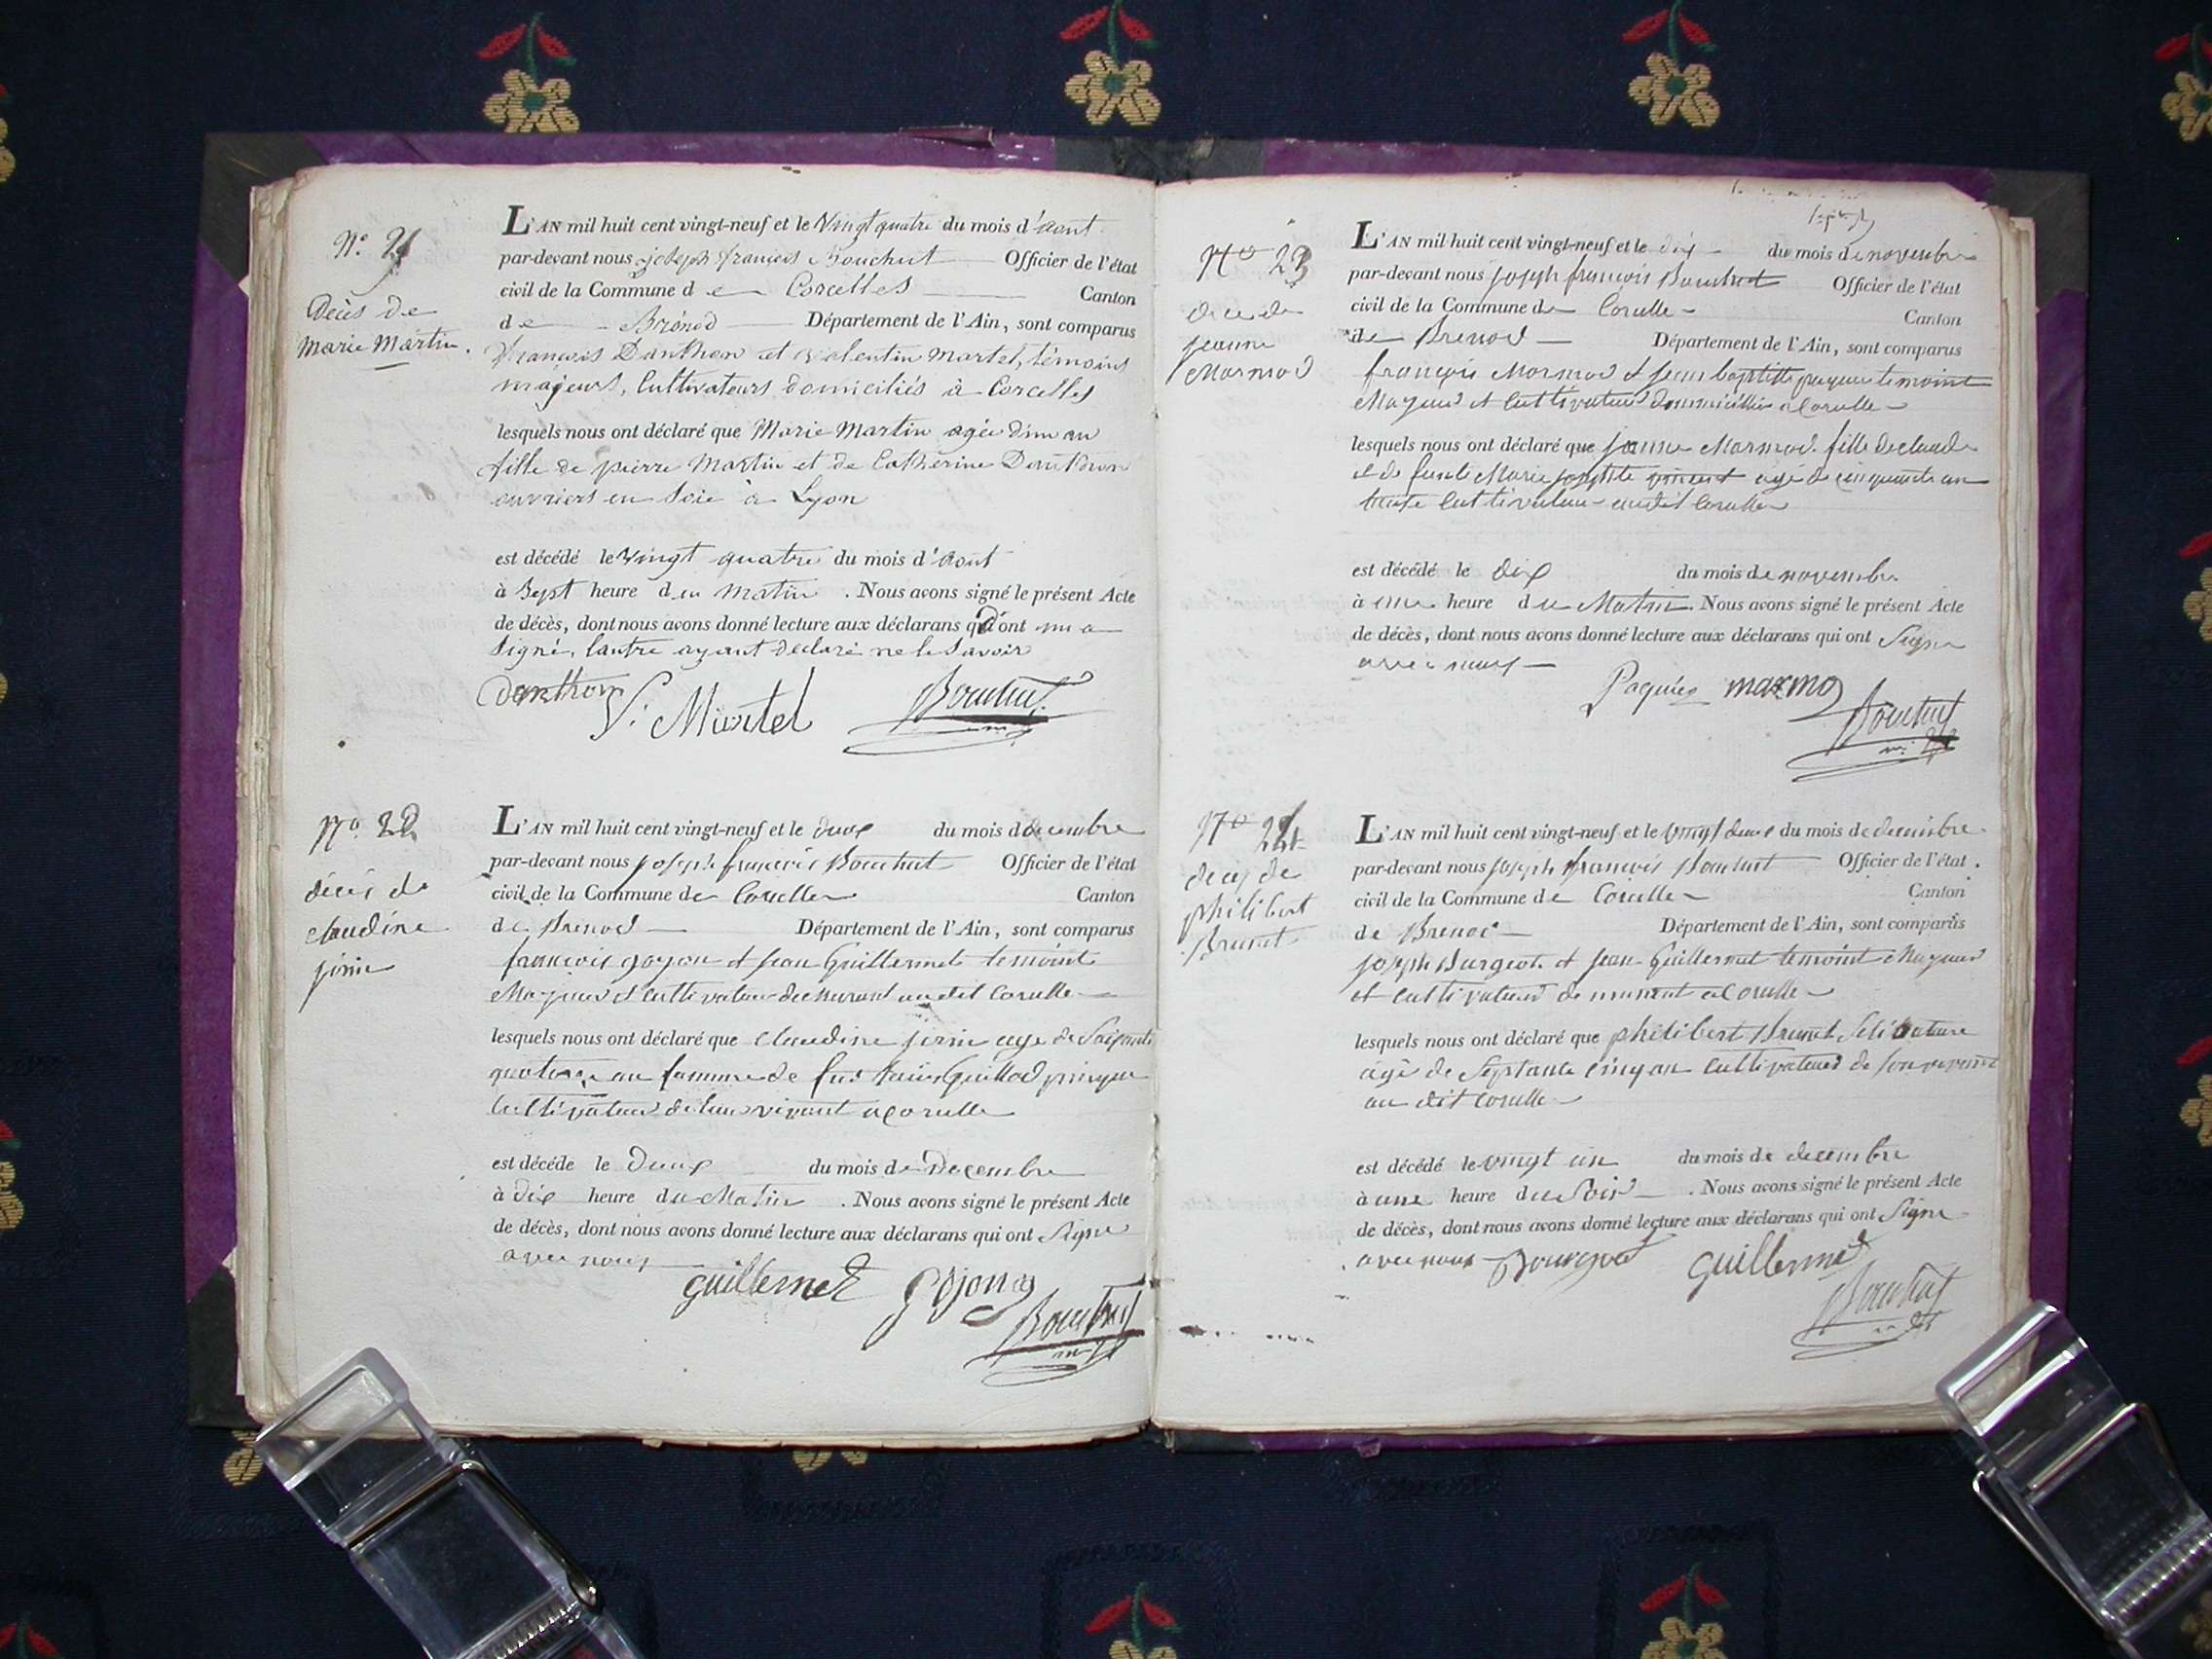 N.o 21
Décès de
Marie Martin.
L'AN mil huit cent vingt-neuf et le Vingt quatre du mois d'aout
par-devant nous joseph françois Bouchut Officier de l'état
civil de la Commune de Corcelles Canton
de Brénod Département de l'Ain, sont comparus
François Danthon et valentin Martel, témoins
majeurs, Cultivateurs domiciliés à Corcelles
lesquels nous ont déclaré que Marie Martin agée d'un an
fille de pierre Martin et de Catherine Danthon
ouvriers en Soie à Lyon
est décédé le Vingt quatre du mois d'aout
à Sept heure du Matin. Nous avons signé le présent Acte
de décès, dont nous avons donné lecture aux déclarans dont un a
Signé, l'autre ayant declaré ne le Savoir
Danthon V. Martel Bouchut
N.o 22
décés de
claudine
L'AN mil huit cent vingt-neuf et le deux du mois decembre
par-devant nous joseph françois Bouchut Officier de l'état
civil de la Commune de Corcelle Canton
de Brenod Département de l'Ain, sont comparus
françois goyon et jean Guillermet temoint
Majeur et cultivateur demeurant audit Corcelle
lesquels nous ont déclaré que claudine age de Soixante
quatorze an famme de feu Guillod
Cultivateur de Son vivant a corcelle
est décédé le Deux du mois de Decembre
à dix heure du Matin. Nous avons signé le présent Acte
de décès, dont nous avons donné lecture aux déclarans qui ont Signe
avec nous
guillermet gojon Bouchut
N.o 23
deces de
jeanne
Marmod
L'AN mil huit cent vingt-neuf et le dix du mois de novembre
par-devant nous joseph françois Bouchut Officier de l'état
civil de la Commune de Corcelle Canton
de Brenod Département de l'Ain, sont comparus
françois Marmod et jean baptiste paquer temoint
Majeur et Cultivateur a Corcelle
lesquels nous ont déclaré que jeanne Marmod fille de claude
et de Marie vincent agé de cinquante an
Cultivateur audit Corcelle
est décédé le dix du mois de novembre
à une heure du Matin. Nous avons signé le présent Acte
de décès, dont nous avons donné lecture aux déclarans qui ont Signe
avec nous
Paquier marmo Bouchut
N.o 24
deces de
philibert
Brunet
L'AN mil huit cent vingt-neuf et le vingt deux du mois de decembre
par-devant nous joseph françois Bouchut Officier de l'état
civil de la Commune de Corcelle Canton
de Brenod Département de l'Ain, sont comparus
joseph Burgeot et jean Guillermet temoint Majeur
et cultivateur demeurant a Corcelle
lesquels nous ont déclaré que philibert Brunet Selibataire
agé de Septante cinq an Cultivateur de Son vivant
au dit Corcelle
est décédé le vingt un du mois de decembre
à une heure du Soir. Nous avons signé le présent Acte
de décès, dont nous avons donné lecture aux déclarans qui ont Signe
avec nous guillermet
Bouchut